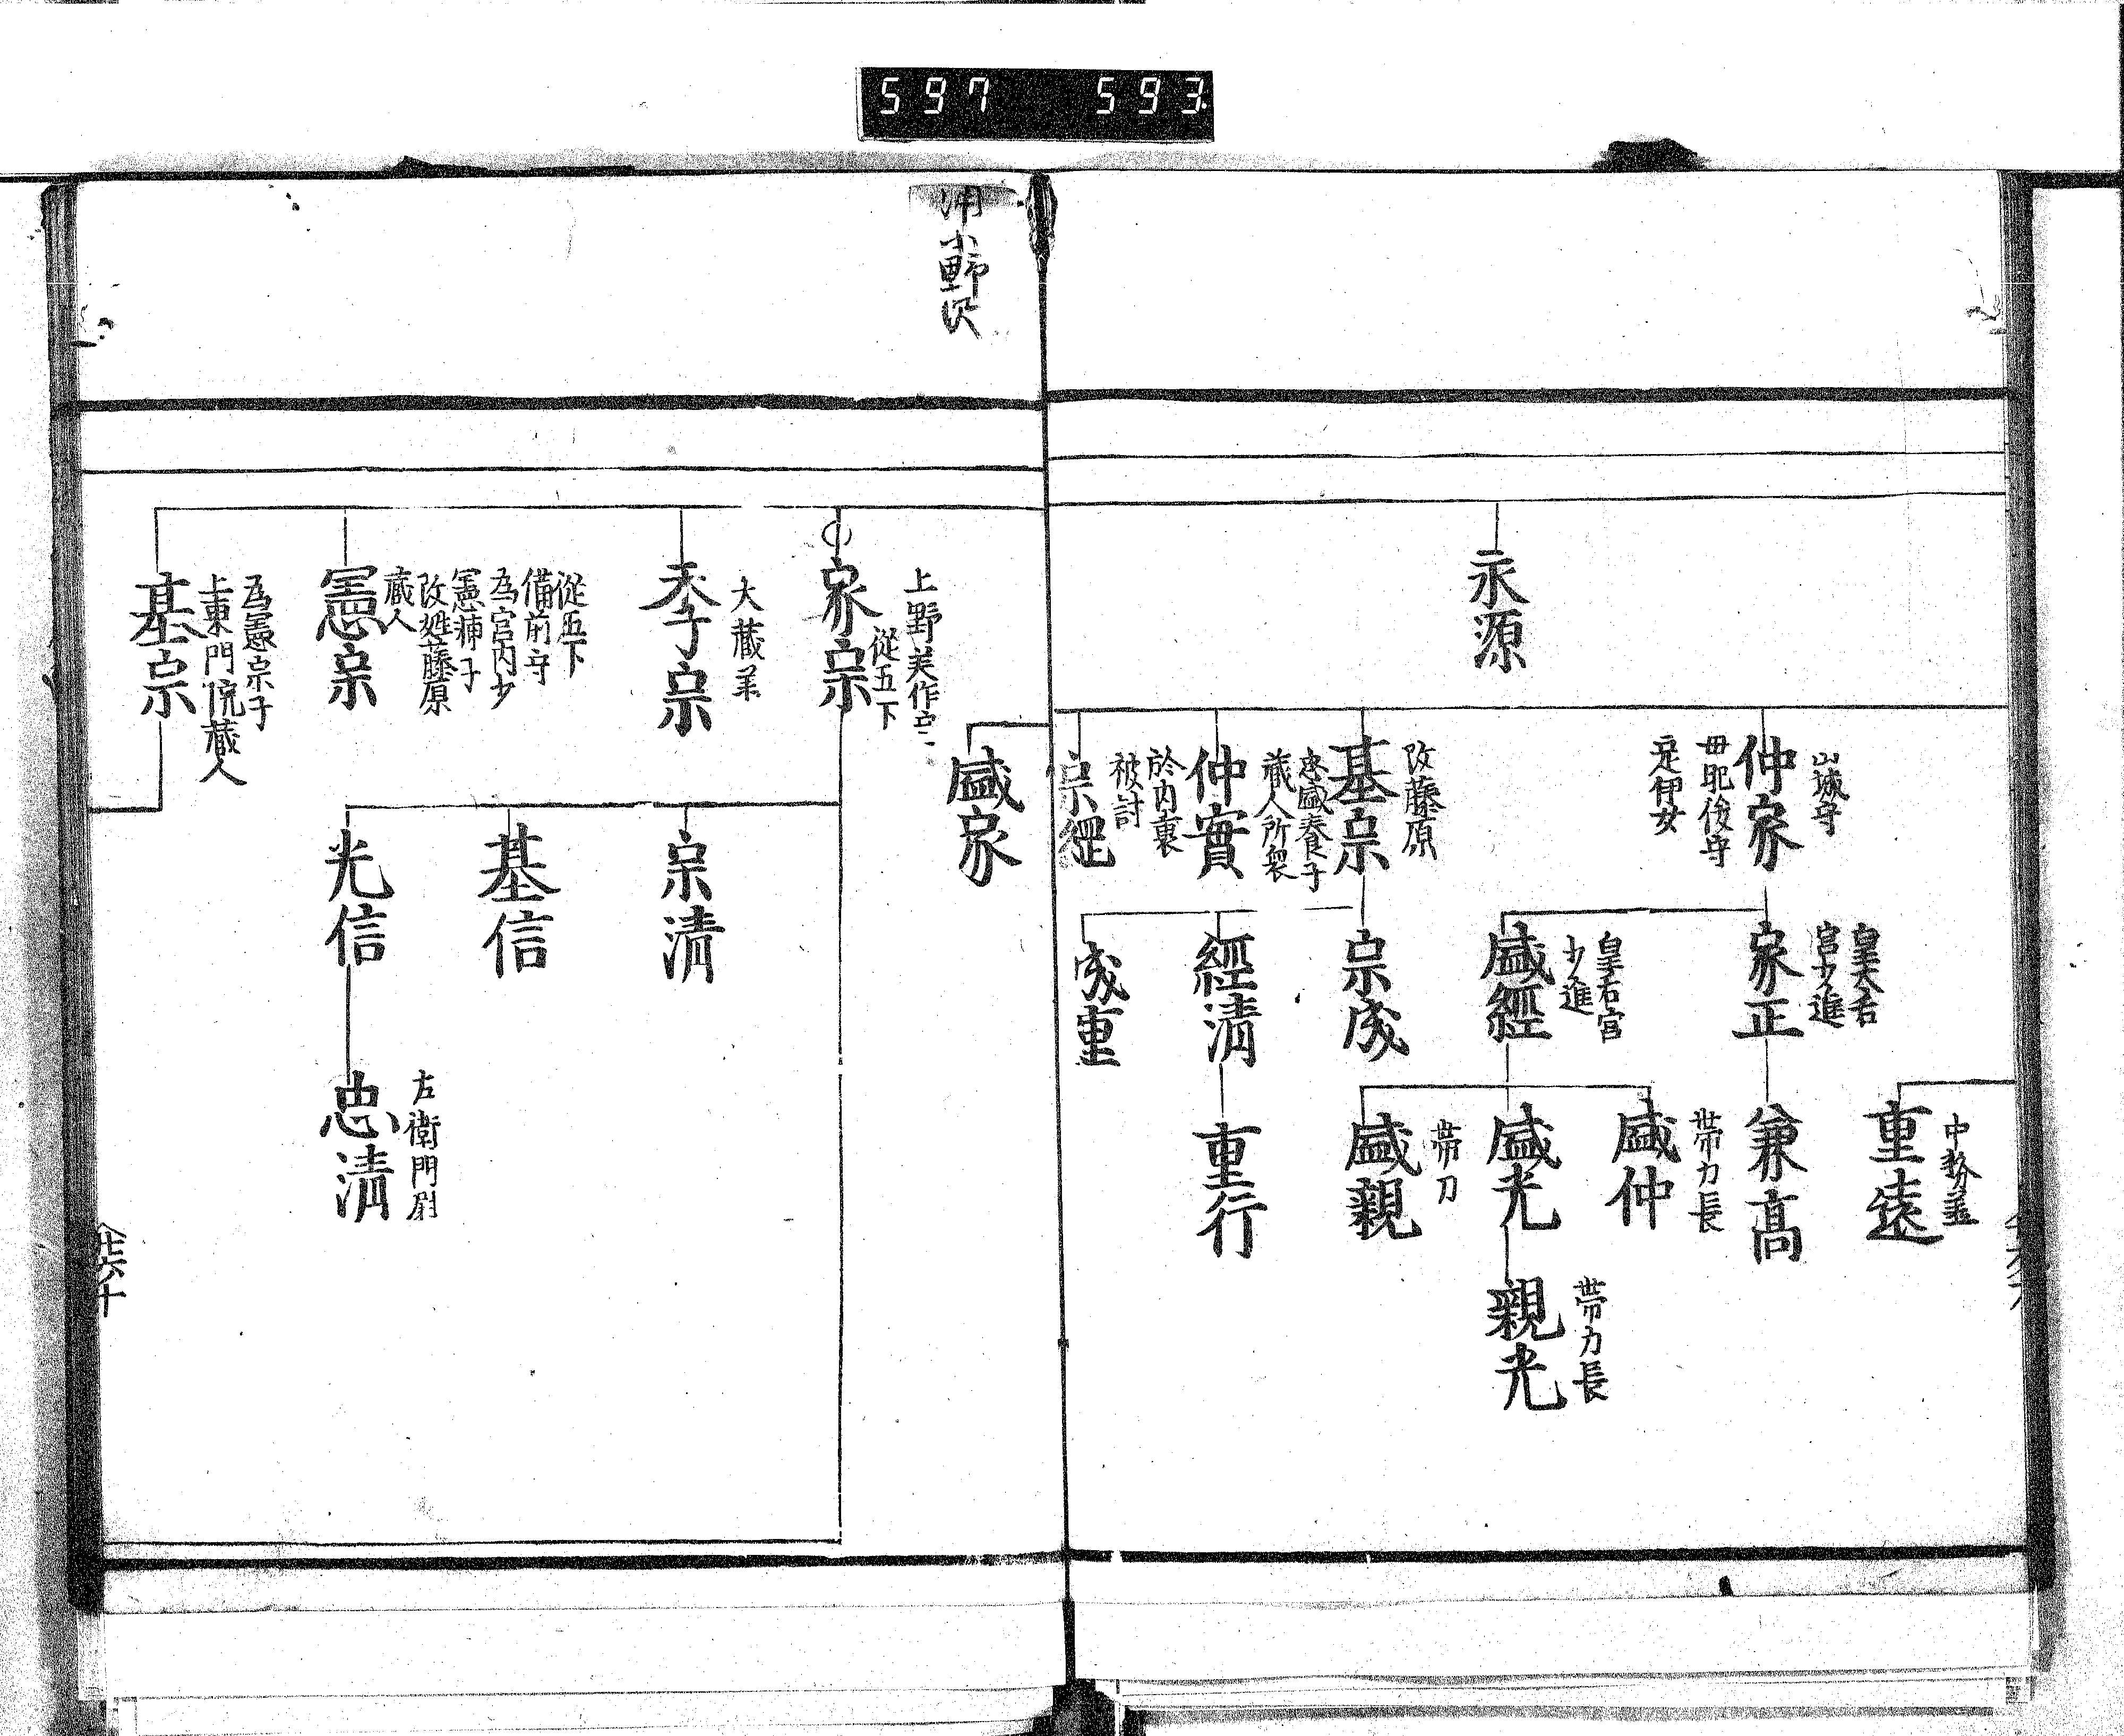 597 593
永源
山城守
仲家
母肥後守
定伊女
改藤原
基宗
忠盛養子
蔵人所衆
仲實
於内裏
被討
宗經
盛家
皇太后
宮少進
家正
皇后宮
少進
盛經
宗成
經清
成重
中務丞
重遠
兼高
帯刀長
盛仲
盛光
帯刀
盛親
重行
帯刀長
親光
小野
上野美作守
從五下
家宗
大蔵丞
季宗
從五下
備前守
為宮内少
憲輔子
改姓藤原
蔵人
憲宗
為憲宗子
上東門院蔵人
基宗
宗清
基信
光信
左衛門尉
忠清